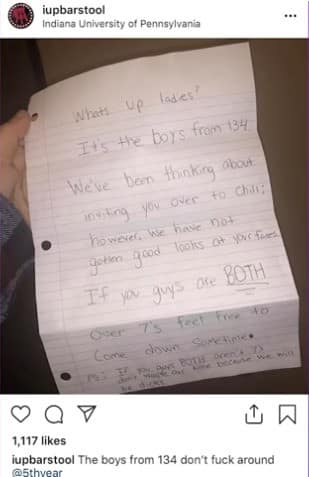 iupbarstool
Indiana University of Pennsylvania
Whats up ladies?
It's the boys from 134
We've been thinking about
inviting you over to chill;
however, we have not
gotten good looks at your faces
If you guys are BOTH
over 7's feel free to
come down sometime.
PS: If you guys BOTH aren't 7's
don't waste our time because we will
be dicks
1,117 likes
iupbarstool The boys from 134 don't fuck around
@5thyear